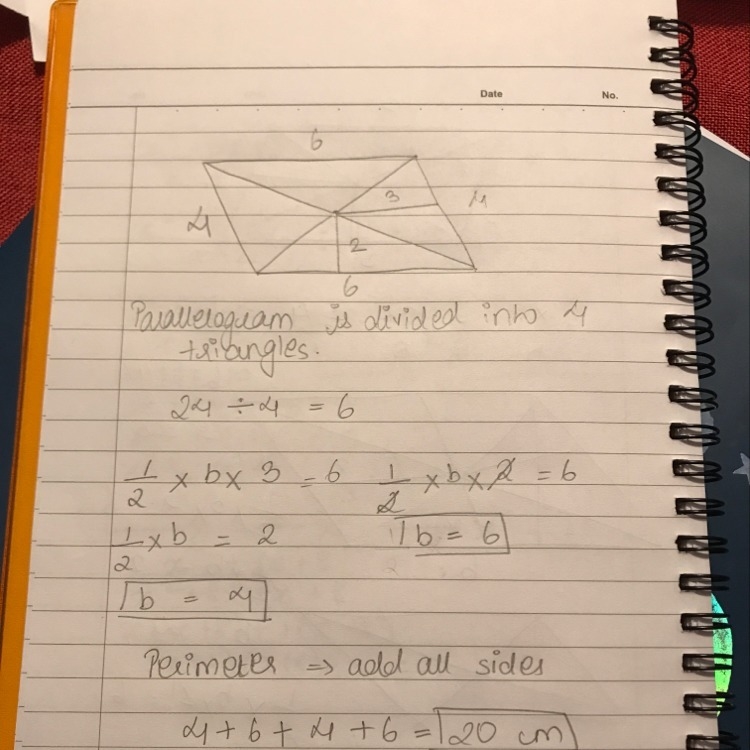 Date No.
6
4 3 4
2
6
Parallelogram is divided into 4
triangles.
24 ÷ 4 = 6
1/2 × b × 3 = 6 1/2 × b × 2 = 6
1/2 × b = 2 b = 6
b = 4
Perimeter ⇒ add all sides
4 + 6 + 4 + 6 = 20 cm